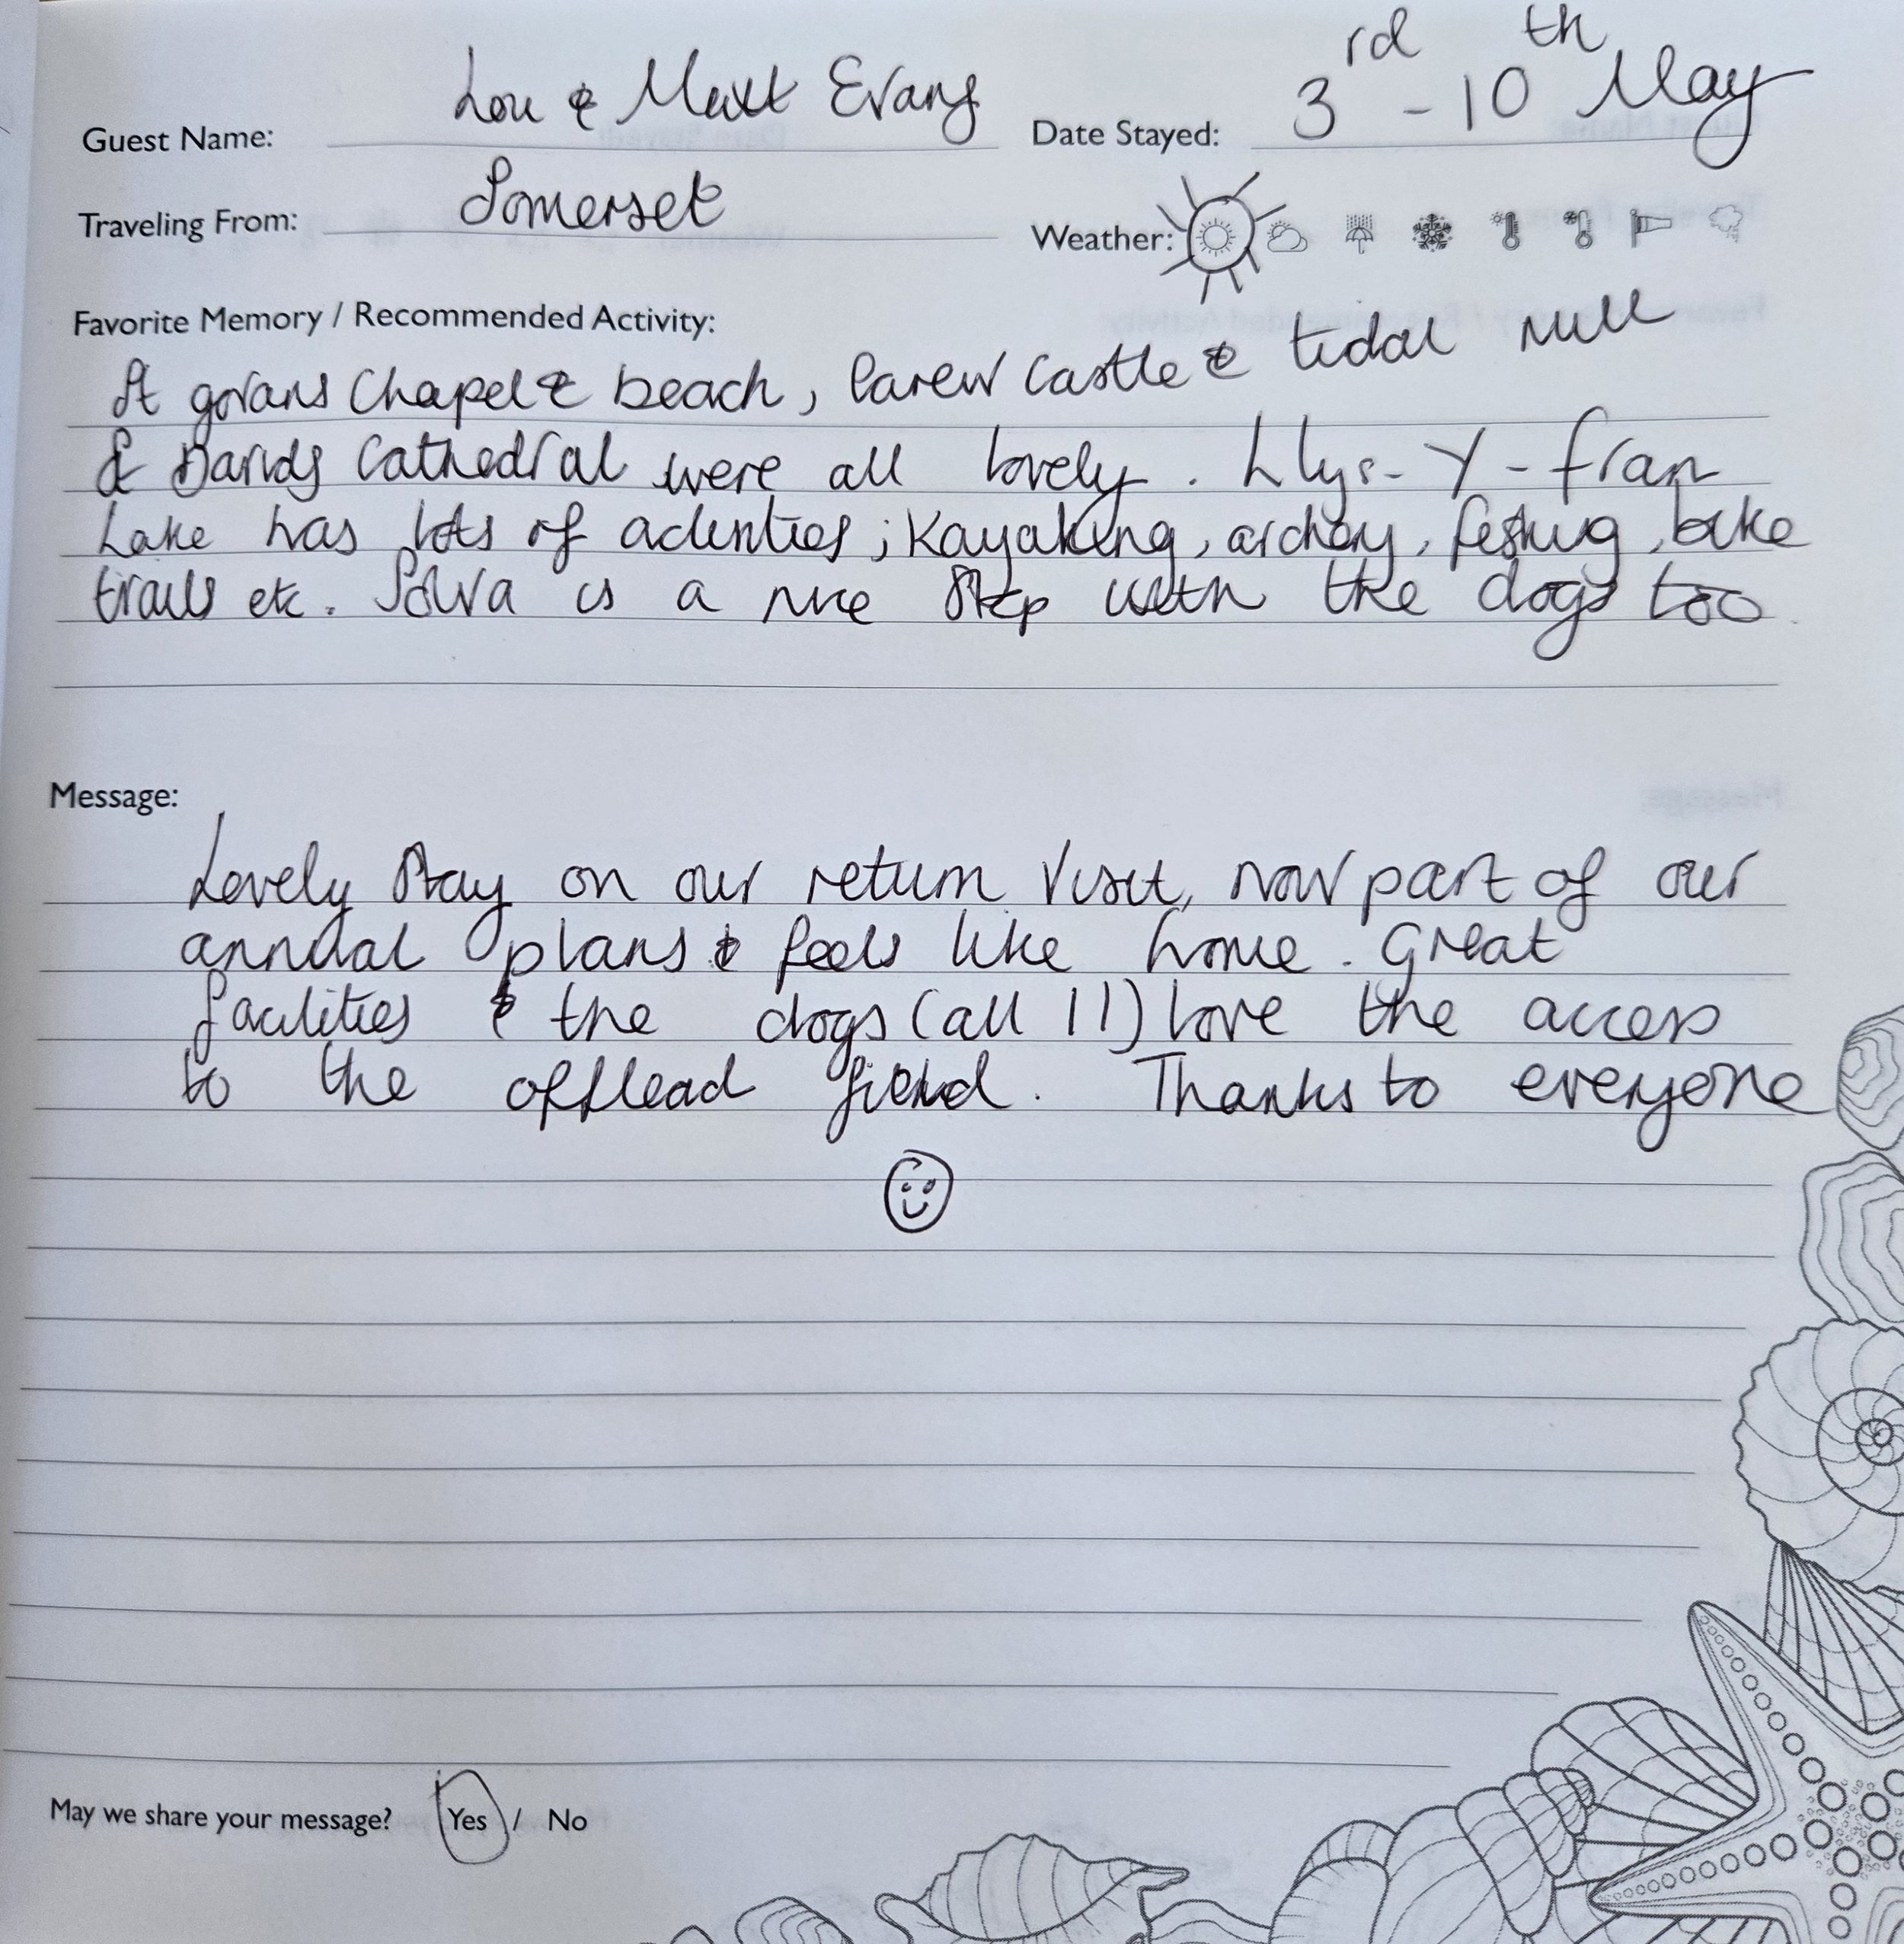 Guest Name: Lou & Matt Evans
Date Stayed: 3rd - 10th May
Traveling From: Somerset
Weather:
Favorite Memory / Recommended Activity:
St govans Chapel & beach, Carew Castle & tidal mill
St Davids Cathedral were all lovely. Llys-Y-fran
Lake has lots of activities; Kayaking, archery, fishing, bike
trails etc. Solva is a nice stop with the dogs too
Message:
Lovely stay on our return visit, now part of our
annual plans & feels like home. Great
facilities & the dogs (all 11) love the access
to the offlead field. Thanks to everyone
May we share your message? Yes / No